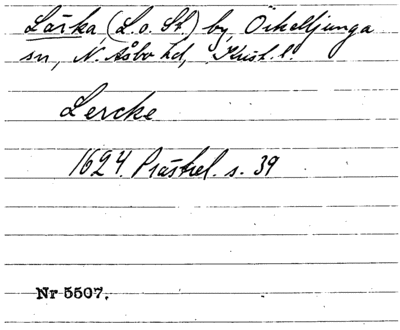 Lärka (L. o. St.) by, Örkelljunga
sn, N. Åsbo hd, Krist. l.
Lercke
1624. Prästrel. s. 39
Nr 5507.